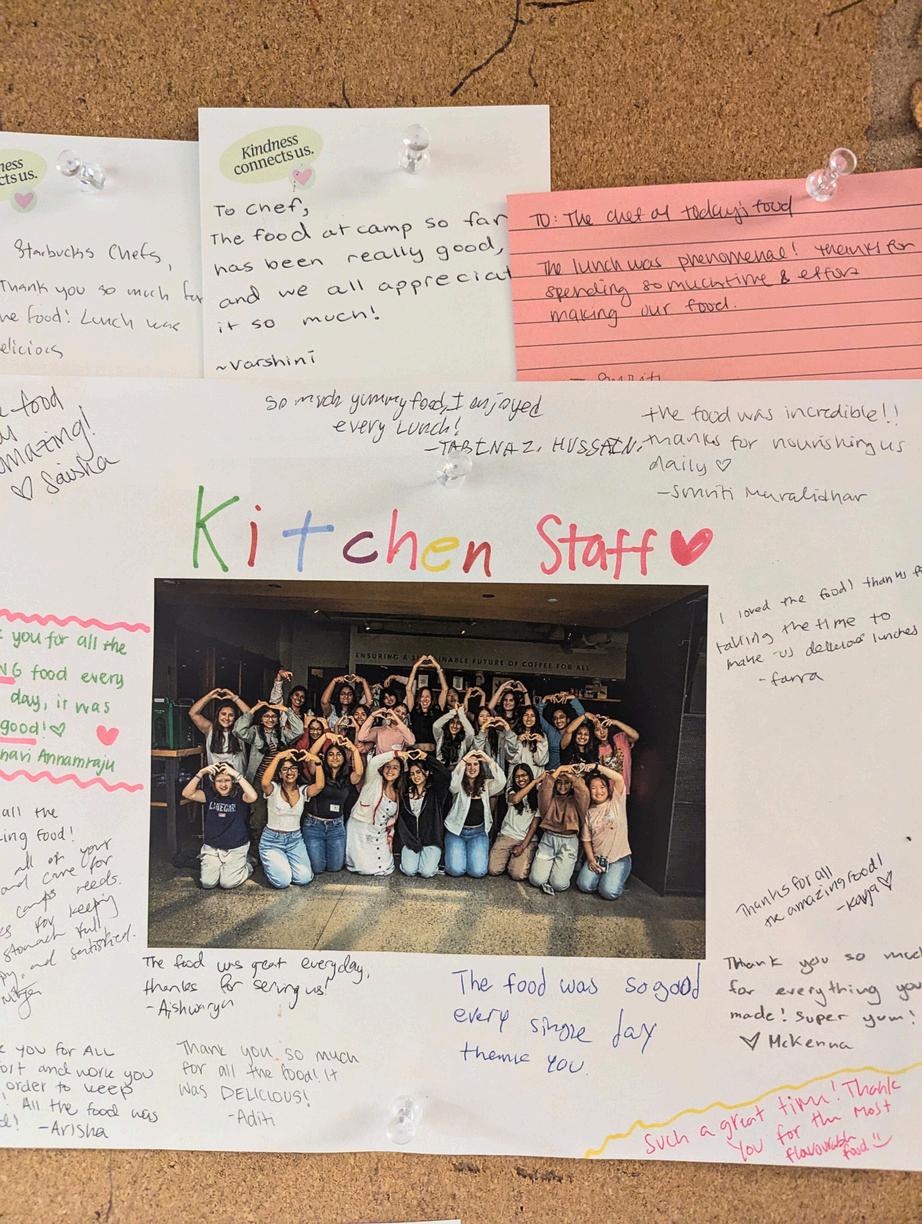 ness
cts us.
Starbucks Chefs,
Thank you so much for
he food! Lunch was
elicious
Kindness
connects us.
To Chef,
The food at camp so far
has been really good,
and we all appreciat
it so much!
~Varshini
TO: The chef of today's food
The lunch was phenomenal! thanks for
spending so much time & effort
making our food.
food
mazing!
♡ Saisha
So much yummy food, I enjoyed
every Lunch!
-TABINAZ, HUSSAIN.
the food was incredible!!
thanks for nourishing us
daily ♡
-Smriti Muralidhar
Kitchen Staff ♥
you for all the
NG food every
day, it was
good! ♡
havi Annamraju
ENSURING A SUSTAINABLE FUTURE OF COFFEE FOR ALL
I loved the food! thanks f
taking the time to
make us delicious lunches
-farra
all the
zing food!
all of your
and care for
camps needs.
for keeping
stomach full
py, and satisfied.
Thanks for all
the amazing food!
-Kaya ♡
The food was great everyday,
thanks for serving us!
-Aishwarya
The food was so good
every single day
thank you.
Thank you so much
for everything you
made! Super yum!
♡ McKenna
you for ALL
ort and work you
order to keep
! All the food was
! -Arisha
Thank you so much
for all the food! It
was DELICIOUS!
-Aditi
Such a great time! Thank
You for the most
flavourable
food :)